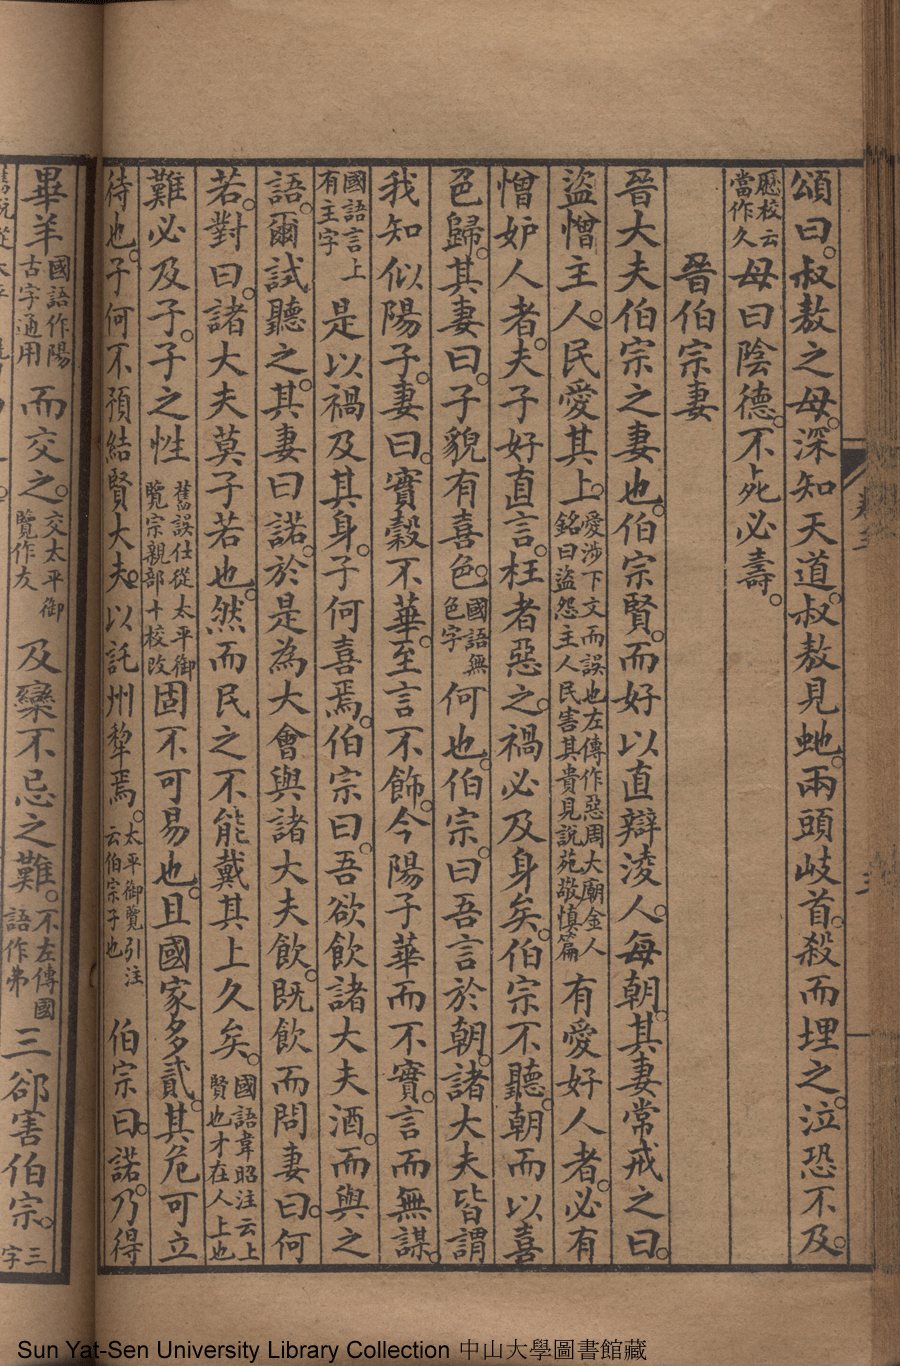 頌曰。叔敖之母。深知天道。叔敖見虵。兩頭岐首。殺而埋之。泣恐不及。
歷校云當作久母曰陰德。不死必壽。
晉伯宗妻
晉大夫伯宗之妻也。伯宗賢。而好以直辯淩人。每朝。其妻常戒之曰。
盜憎主人。民愛其上。愛涉下文而誤也左傳作惡周大廟金人銘曰盜怨主人民害其貴見說苑敬慎篇有愛好人者。必有
憎妒人者。夫子好直言。枉者惡之。禍必及身矣。伯宗不聽。朝而以喜
色歸。其妻曰。子貌有喜色。國語無色字何也。伯宗曰。吾言於朝。諸大夫皆謂
我知似陽子。妻曰。實穀不華。至言不飾。今陽子華而不實。言而無謀。
國語言上有主字是以禍及其身。子何喜焉。伯宗曰。吾欲飲諸大夫酒。而與之
語。爾試聽之。其妻曰諾。於是為大會與諸大夫飲。既飲而問妻曰。何
若。對曰。諸大夫莫子若也。然而民之不能戴其上久矣。國語韋昭注云上賢也才在人上也
難必及子。子之性舊誤仕從太平御覽宗親部十校改固不可易也。且國家多貳。其危可立
待也。子何不預結賢大夫。以託州犂焉。太平御覽引注云伯宗子也伯宗曰。諾。乃得
畢羊國語作陽古字通用而交之。交太平御覽作友及欒不忌之難。不左傳國語作弗三郤害伯宗。三字
Sun Yat-Sen University Library Collection 中山大學圖書館藏